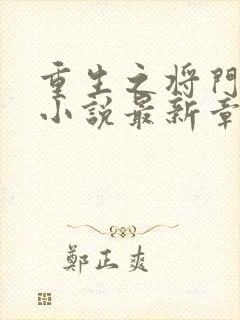 重生之将門
小説最新章
鄭正爽